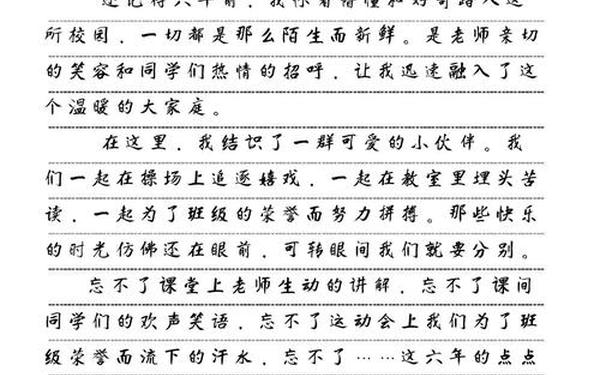 还记得六年前，我怀着懵懂和好奇踏入这
所校园，一切都是那么陌生而新鲜。是老师亲切
的笑容和同学们热情的招呼，让我迅速融入了这
个温暖的大家庭。
在这里，我结识了一群可爱的小伙伴。我
们一起在操场上追逐嬉戏，一起在教室里埋头苦
读，一起为了班级的荣誉而努力拼搏。那些快乐
的时光仿佛还在眼前，可转眼间我们就要分别。
忘不了课堂上老师生动的讲解，忘不了课间
同学们的欢声笑语，忘不了运动会上我们为了班
级荣誉而流下的汗水，忘不了……这六年的点点